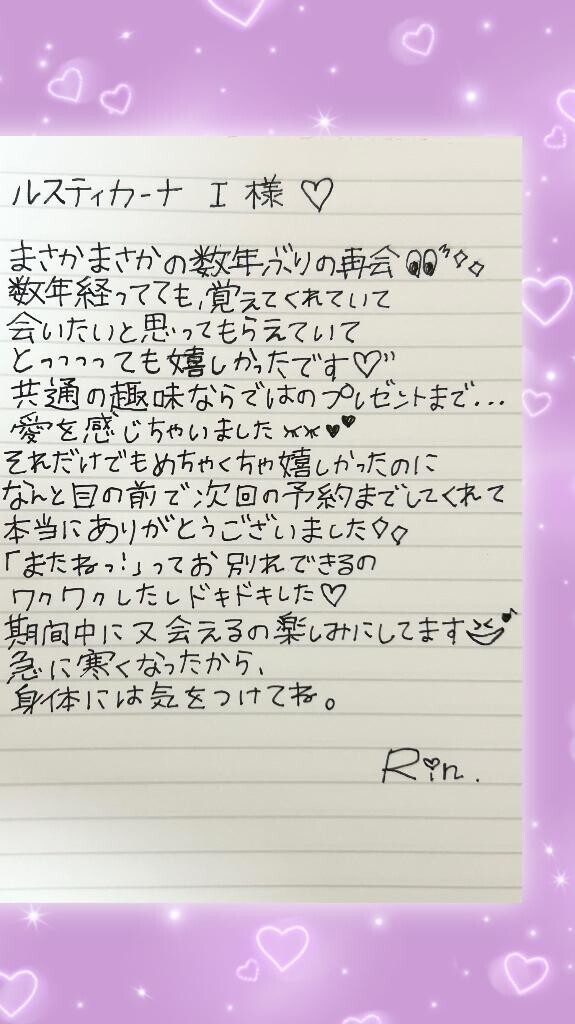 ルスティカーナ I 様 ♡
まさかまさかの数年ぶりの再会
数年経ってても、覚えてくれていて
会いたいと思ってもらえていて
とっっっっても嬉しかったです♡
共通の趣味ならではのプレゼントまで...
愛を感じちゃいました
それだけでもめちゃくちゃ嬉しかったのに
なんと目の前で次回の予約までしてくれて
本当にありがとうございました
「またねっ!」ってお別れできるの
ワクワクしたしドキドキした♡
期間中に又会えるの楽しみにしてます
急に寒くなったから、
身体には気をつけてね。
Rin.